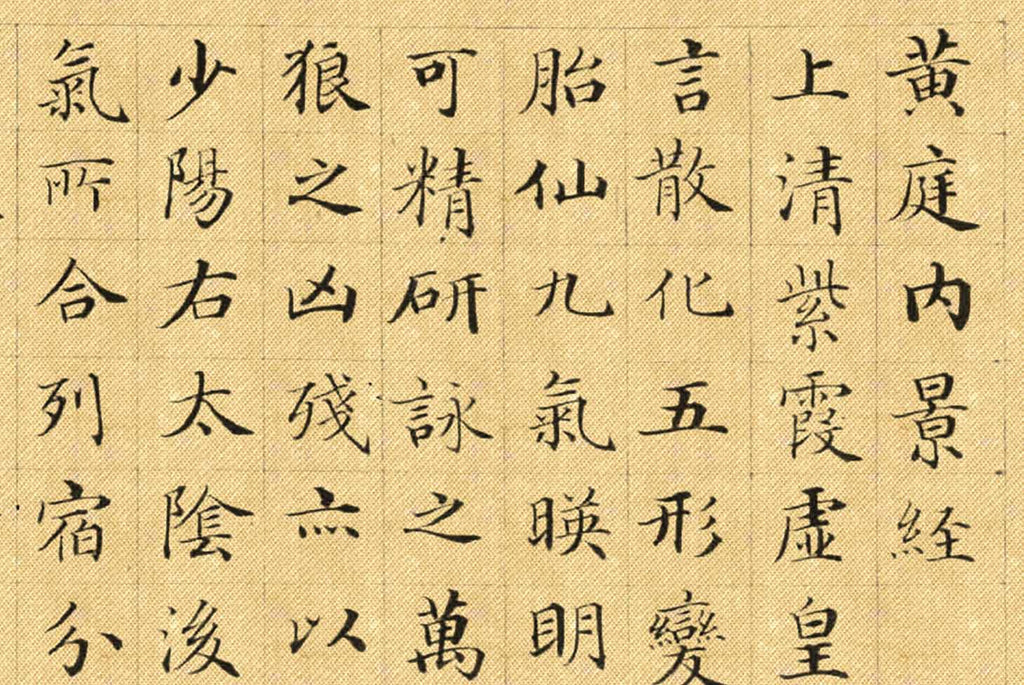 黄庭内景経
上清紫霞虚皇
言散化五形變
胎仙九氣暎明
可精研詠之萬
狼之凶殘亦以
少陽右太陰後
氣所合列宿分